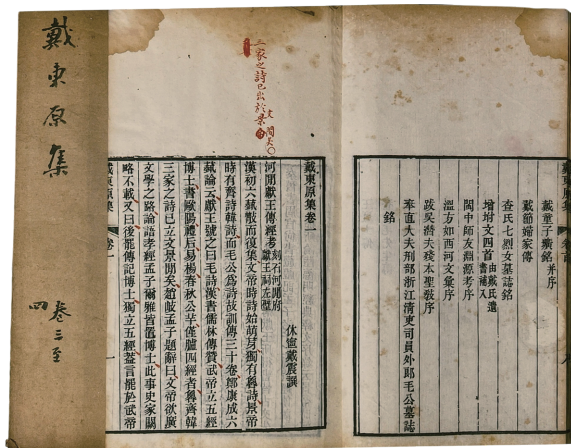 戴東原集
卷三至
四
三家之詩已出於景
戴東原集卷一
休寧戴震譔
河閒獻王傳經考刻石河閒府獻王祠左壁
漢初六蓺散而復集文帝時詩始萌芽獨有魯詩景帝
時有齊詩韓詩而毛公為詩故訓傳三十卷鄭康成六
蓺論云獻王號之曰毛詩漢書儒林傳贊武帝立五經
博士書歐陽禮后易楊春秋公羊僅臚四經者魯齊韓
三家之詩已立文景閒矣趙岐孟子題辭曰文帝欲廣
文學之路論語孝經孟子爾雅皆置博士此事史家闕
略不載又曰後罷傳記博士獨立五經蓋言罷於武帝
戴東原集
卷一
戴童子壙銘并序
戴節婦家傳
查氏七烈女墓誌銘
增坿文四首由戴氏遺書補入
閩中師友淵源考序
溫方如西河文彙序
跋吳潛夫殘本聖教序
奉直大夫刑部浙江清吏司員外郎毛公墓誌
銘